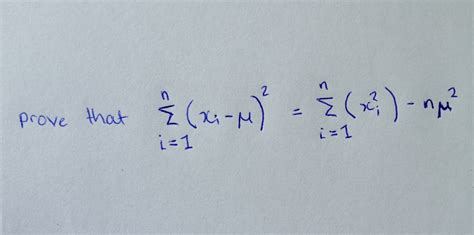 prove that $\sum_{i=1}^{n} (x_i - \mu)^2 = \sum_{i=1}^{n} (x_i^2) - n\mu^2$